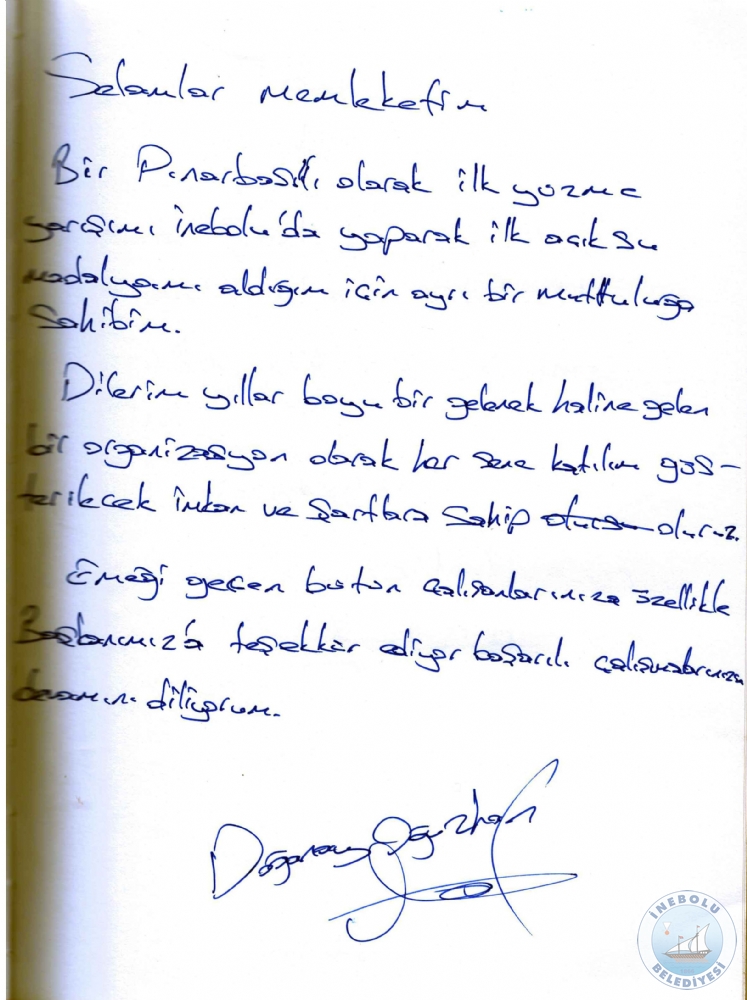 Selamlar memleketim
Bir Pınarbaşılı olarak ilk yüzme
yarışımı İnebolu'da yaparak ilk açık su
madalyamı aldığım için ayrı bir mutluluğa
sahibim.
Dilerim yıllar boyu bir gelenek haline gelen
bir organizasyon olarak her sene katılım gös-
terilecek imkan ve şartlara sahip oluruz.
Emeği geçen bütün çalışanlarınıza özellikle
Başkanımıza teşekkür ediyor başarılı çalışmalarınızın
devamını diliyorum.
Doğanay Oğuzhan
İNEBOLU
BELEDİYESİ